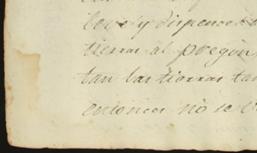 leve y dispence
tierras al pregon
tan las tierras tan
entonces no se